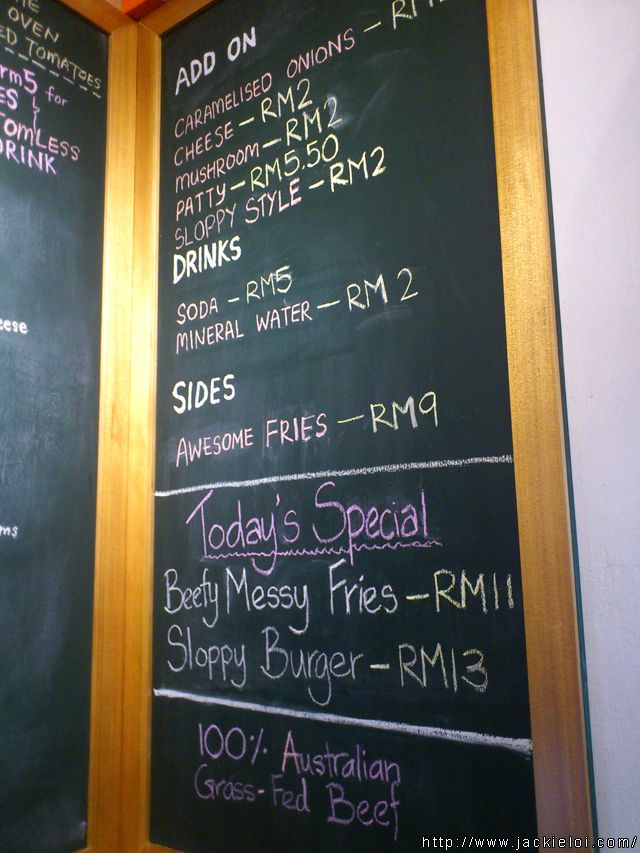 OVEN
ED TOMATOES
rm5 for
TOMLESS
DRINK
ADD ON
CARAMELISED ONIONS -
CHEESE - RM2
MUSHROOM - RM2
PATTY - RM5.50
SLOPPY STYLE - RM2
DRINKS
SODA - RM5
MINERAL WATER - RM 2
SIDES
AWESOME FRIES - RM9
Today's Special
Beefy Messy Fries - RM11
Sloppy Burger - RM13
100% Australian
Grass-Fed Beef
http://www.jackieloi.com/